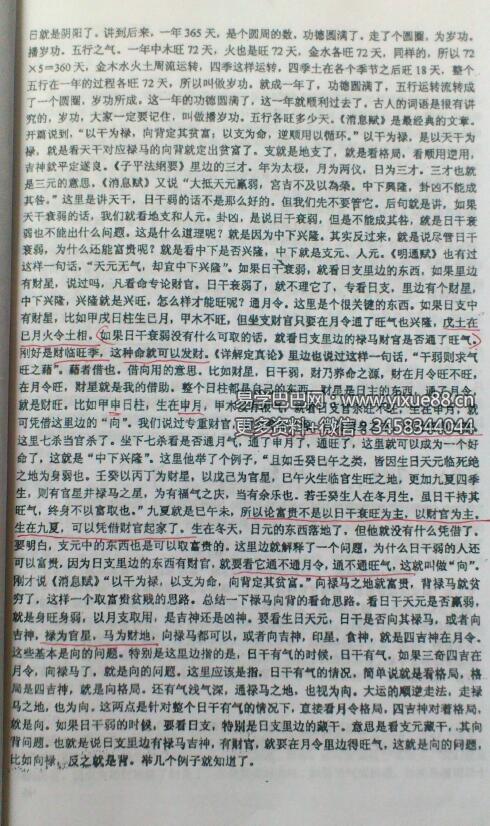 日就是阴阳了。讲到后来，一年365天，是个圆周的数，功德圆满了。走了个圆圈，为岁功。
播岁功。五行之气。一年中木旺72天，火也是旺72天，金水各旺72天，同样的，所以72
×5＝360天，金木水火土周流运转，四季这样运转，四季土在各个季节之后旺18天，整个
五行在一年的过程各旺72天，所以叫做岁功。就成一年了，功德圆满了，五行运转流转成
了一个圆圈，岁功所成。这一年的功德圆满了，这一年就顺利过去了。古人的词语是很有讲
究的，岁功，大家一定要记住，叫做播岁功。五行各旺多少天。《消息赋》是最经典的文章。
开篇说到，“以干为禄，向背定其贫富；以支为命，逆顺用以循环。”以干为禄，是以天干为
禄，就是看天干对应禄马的向背就定出贫富了。支就是地支了，就是看格局，看顺用逆用，
吉神就平定遂良。《子平法纲要》里边的三才。年为太极，月为两仪，日为三才。三才也就
是三元的意思，《消息赋》又说“大抵天元羸弱，宫吉不及以為榮。中下興隆，卦凶不能成
其咎。”这里是讲天干，日干弱的话不是那么好的。但我们先不要管它。后句就是讲。如果
天干衰弱的话，我们就看地支和人元。卦凶，是说日干衰弱，但是不能成其咎，就是日干衰
弱也不能出什么问题。这是什么道理呢？就是因为中下兴隆。其实反过来，就是说尽管日干
衰弱，为什么还能富贵呢？就是看中下是否兴隆，中下就是支元、人元。《明通赋》也有过
这样一句话，“天元无气，却宜中下兴隆”。如果日干衰弱，就看日支里边的东西，如果里边
有财星，说过吗，凡看命专论财官。日干衰弱了，就不理它了，专看日支，里边有个财星，
中下兴隆，兴隆就是兴旺，怎么样才能旺呢？通月令。这里是个很关键的东西。如果日支中
有财星，比如甲戌日柱生巳月，甲木不旺，但坐支财官只要在月令通了旺气也兴隆，戊土在
巳月火令土相。如果日干衰弱没有什么可取的话，就看日支里边的禄马财官是否通了旺气。
刚好是财临旺季，这种命就可以发财。《详解定真论》里边也说过这样一句话，“干弱则求气
旺之藉”。藉者借也。借向用的意思。比如财星，日干衰弱，财乃养命之源，财在月令旺不旺，
在月令旺，财星就是我的借助。整个日柱都是自己的东西，财星是日主的东西，通了月令，
就是财旺，比如甲申日柱，生在申月，甲木
可凭借这里边的“向”。我们说过专重财官
这里七杀当官杀了。坐下七杀看是否通月气，通了申月了，通旺了，这里就可以成为一个好
命了，这就是“中下兴隆”。这里他举了个例子，“且如壬癸巳午之类，皆因生日天元临死绝
之地为身弱也。壬癸以丙丁为财星，以戊己为官星，巳午火生临官生旺之地，更加九夏四季
生，则有官星并禄马之星，为有福气之庆，当有余乐也。若壬癸生人在冬月生，虽日干持其
旺气，终身不以富取也。”九夏就是巳午未，所以论富贵不是以日干衰旺为主，以财官为主，
生在九夏，可以凭借财官起家了。生在冬天，日元的东西落地了，但他就没有什么凭借了。
要明白，支元中的东西也是可以取富贵的。这里边就解释了一个问题，为什么日干弱的人还
可以富贵，因为日支里边的东西有财官，就要看它通不通月令，通不通旺气，这就叫做“向”。
刚才说《消息赋》“以干为禄，以支为命，向背定其贫富。”向禄马之地就富贵，背禄马就贫
穷了，这样一个取富贵贫贱的思路。总结一下禄马向背的看命思路。看日干天元是否羸弱，
就是身旺身弱，以月支取用，是吉神还是凶神。要看生日天元，日干是否向其禄马，或者向
吉神，禄为官星，马为财地，向禄马都可以，或者向吉神，印星，食神，就是四吉神在月令。
这些基本是向的问题。特别是这里边指的是，日干有气的时候，日干有气。如果三奇四吉在
月令，向禄马了，就是向的问题。这里应该是指，日干有气的情况，简单说就是看格局，格
局是四吉神，就是向格局。还有气浅气深，通禄马之地，也视为向。大运的顺逆走法，走禄
马之地，也为向。这两点是针对整个日干有气的情况下，直接看月令格局，四吉神对着格局，
就是向。如果日干弱的时候，要看日支，特别是日支里的藏干。意思是看支元藏干，其向
背问题。也就是说日支里边有禄马吉神，有财官，就要在月令里边得旺气，这就是向的问题，
比如向禄，反之就是背。举几个例子就知道了。
易学巴巴网：www.yixue88.cn
更多资料+微信：3458344044